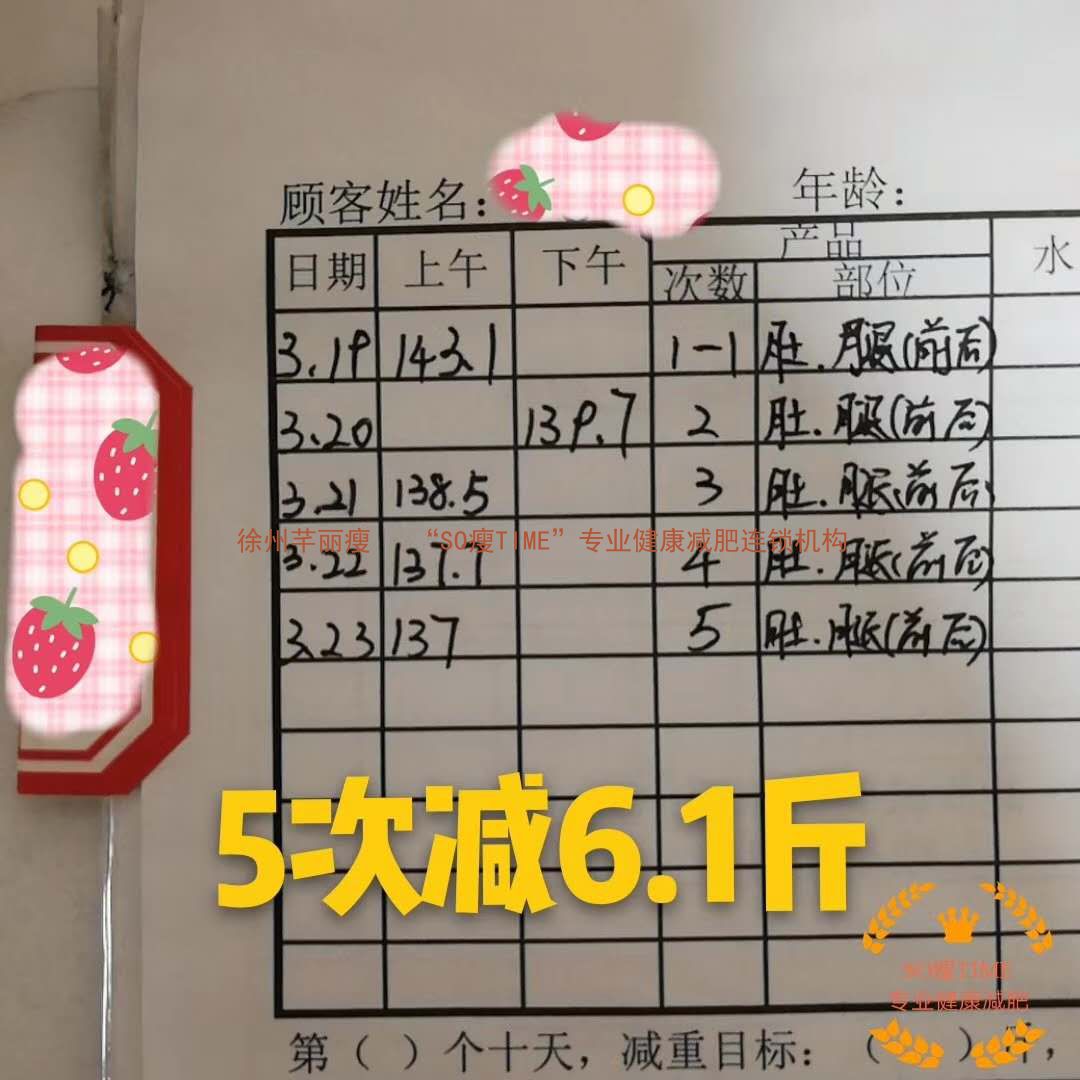 顾客姓名： 年龄：
日期 上午 下午 产品 水
次数 部位
3.19 143.1 1-1 肚.腿(前后)
3.20 139.7 2 肚.腿(前后)
3.21 138.5 3 肚.腿(前后)
徐州芊丽瘦 “SO瘦TIME”专业健康减肥连锁机构
3.22 137.7 4 肚.腿(前后)
3.23 137 5 肚.腿(前后)
5次减6.1斤
SO瘦TIME
专业健康减肥
第（ ）个十天，减重目标：（ ）斤，